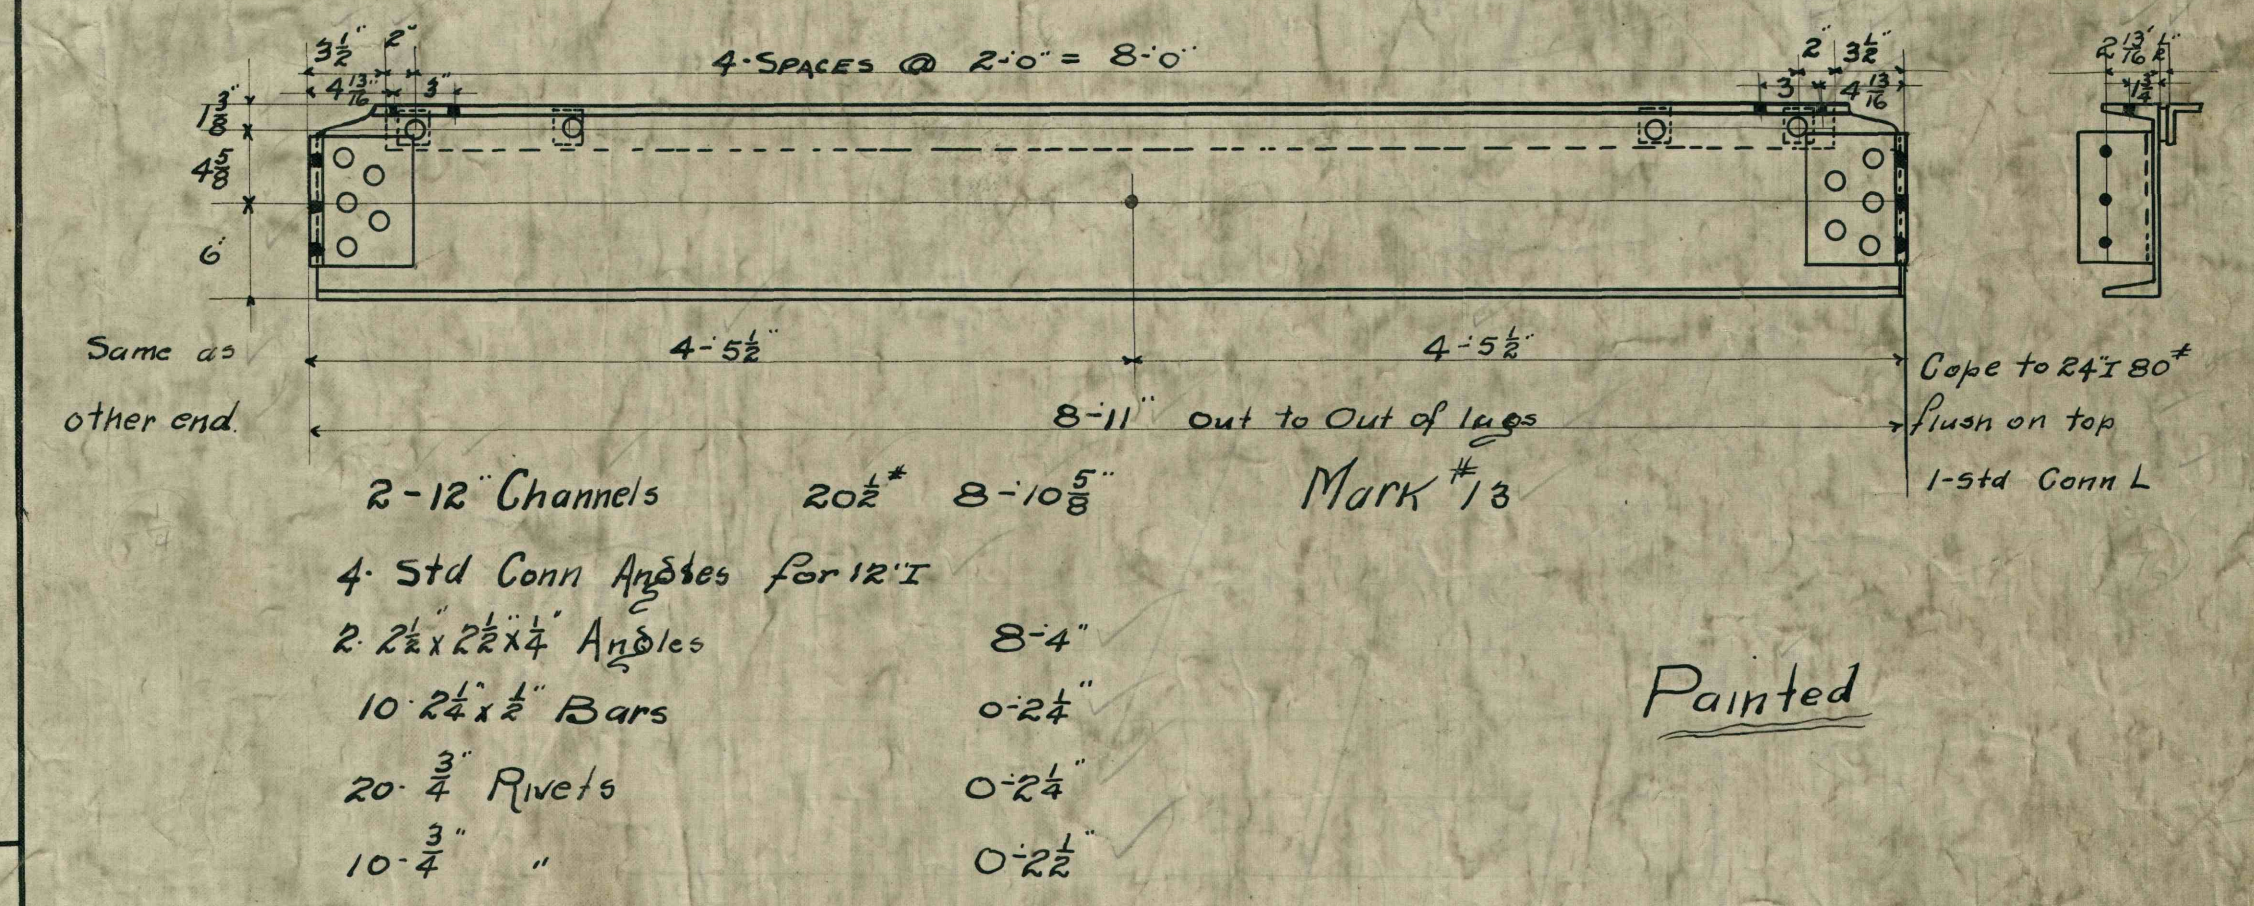 3½" 2" 4-SPACES @ 2'-0" = 8'-0" 2" 3½" 2 13/16" ½"
4 13/16" 3" 3" 4 13/16" 1¾"
1⅜"
4⅝"
6"
4'-5½" 4'-5½"
Same as
other end.
Cope to 24" I 80#
flush on top
8'-11" Out to Out of lugs
1-Std Conn L
2-12" Channels 20½# 8'-10⅝" Mark #13
4- Std Conn Angles for 12" I
2- 2½" x 2½" x ¼" Angles 8'-4"
10- 2¼" x ½" Bars 0'-2¼"
20- ¾" Rivets 0'-2¼"
10- ¾" " 0'-2½"
Painted